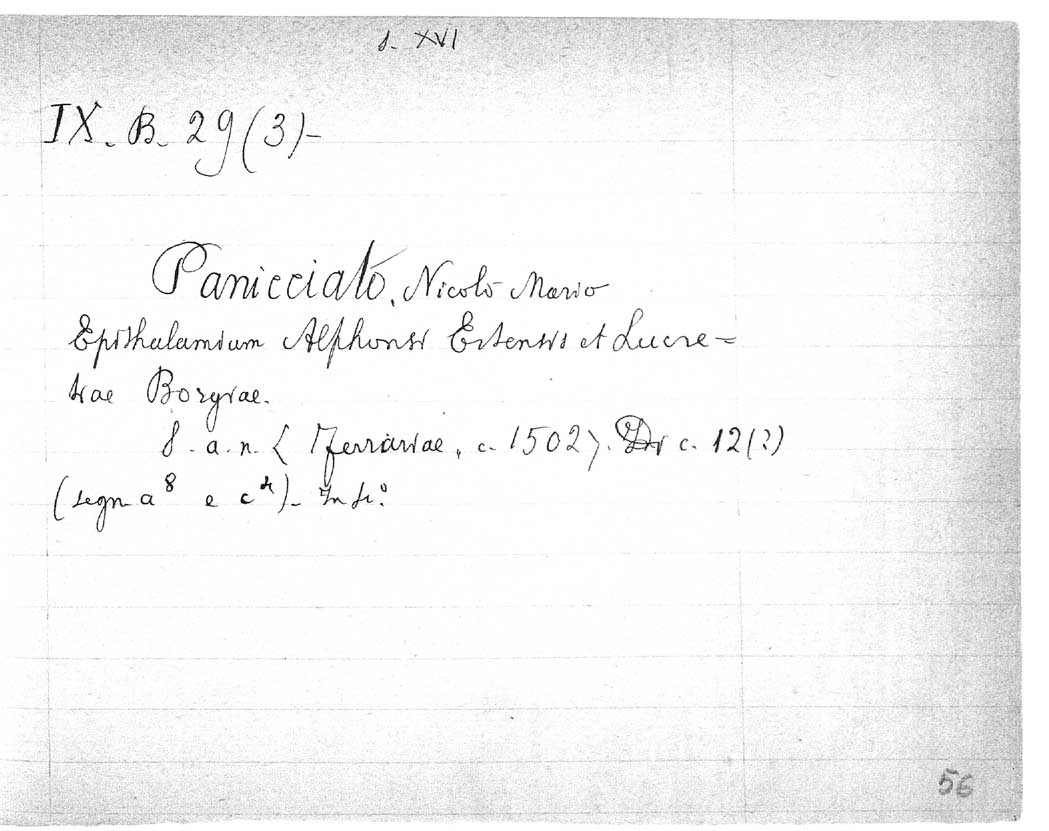 s. XVI
IX. B. 29 (3) -
Panicciato, Nicolò Mario
Epithalamium Alphonsi Estensis et Lucre=
tiae Borgiae.
S. a. n. < Ferrariae, c. 1502>. Di c. 12 (?)
(segn a⁸ e c⁴). In 4.º
56